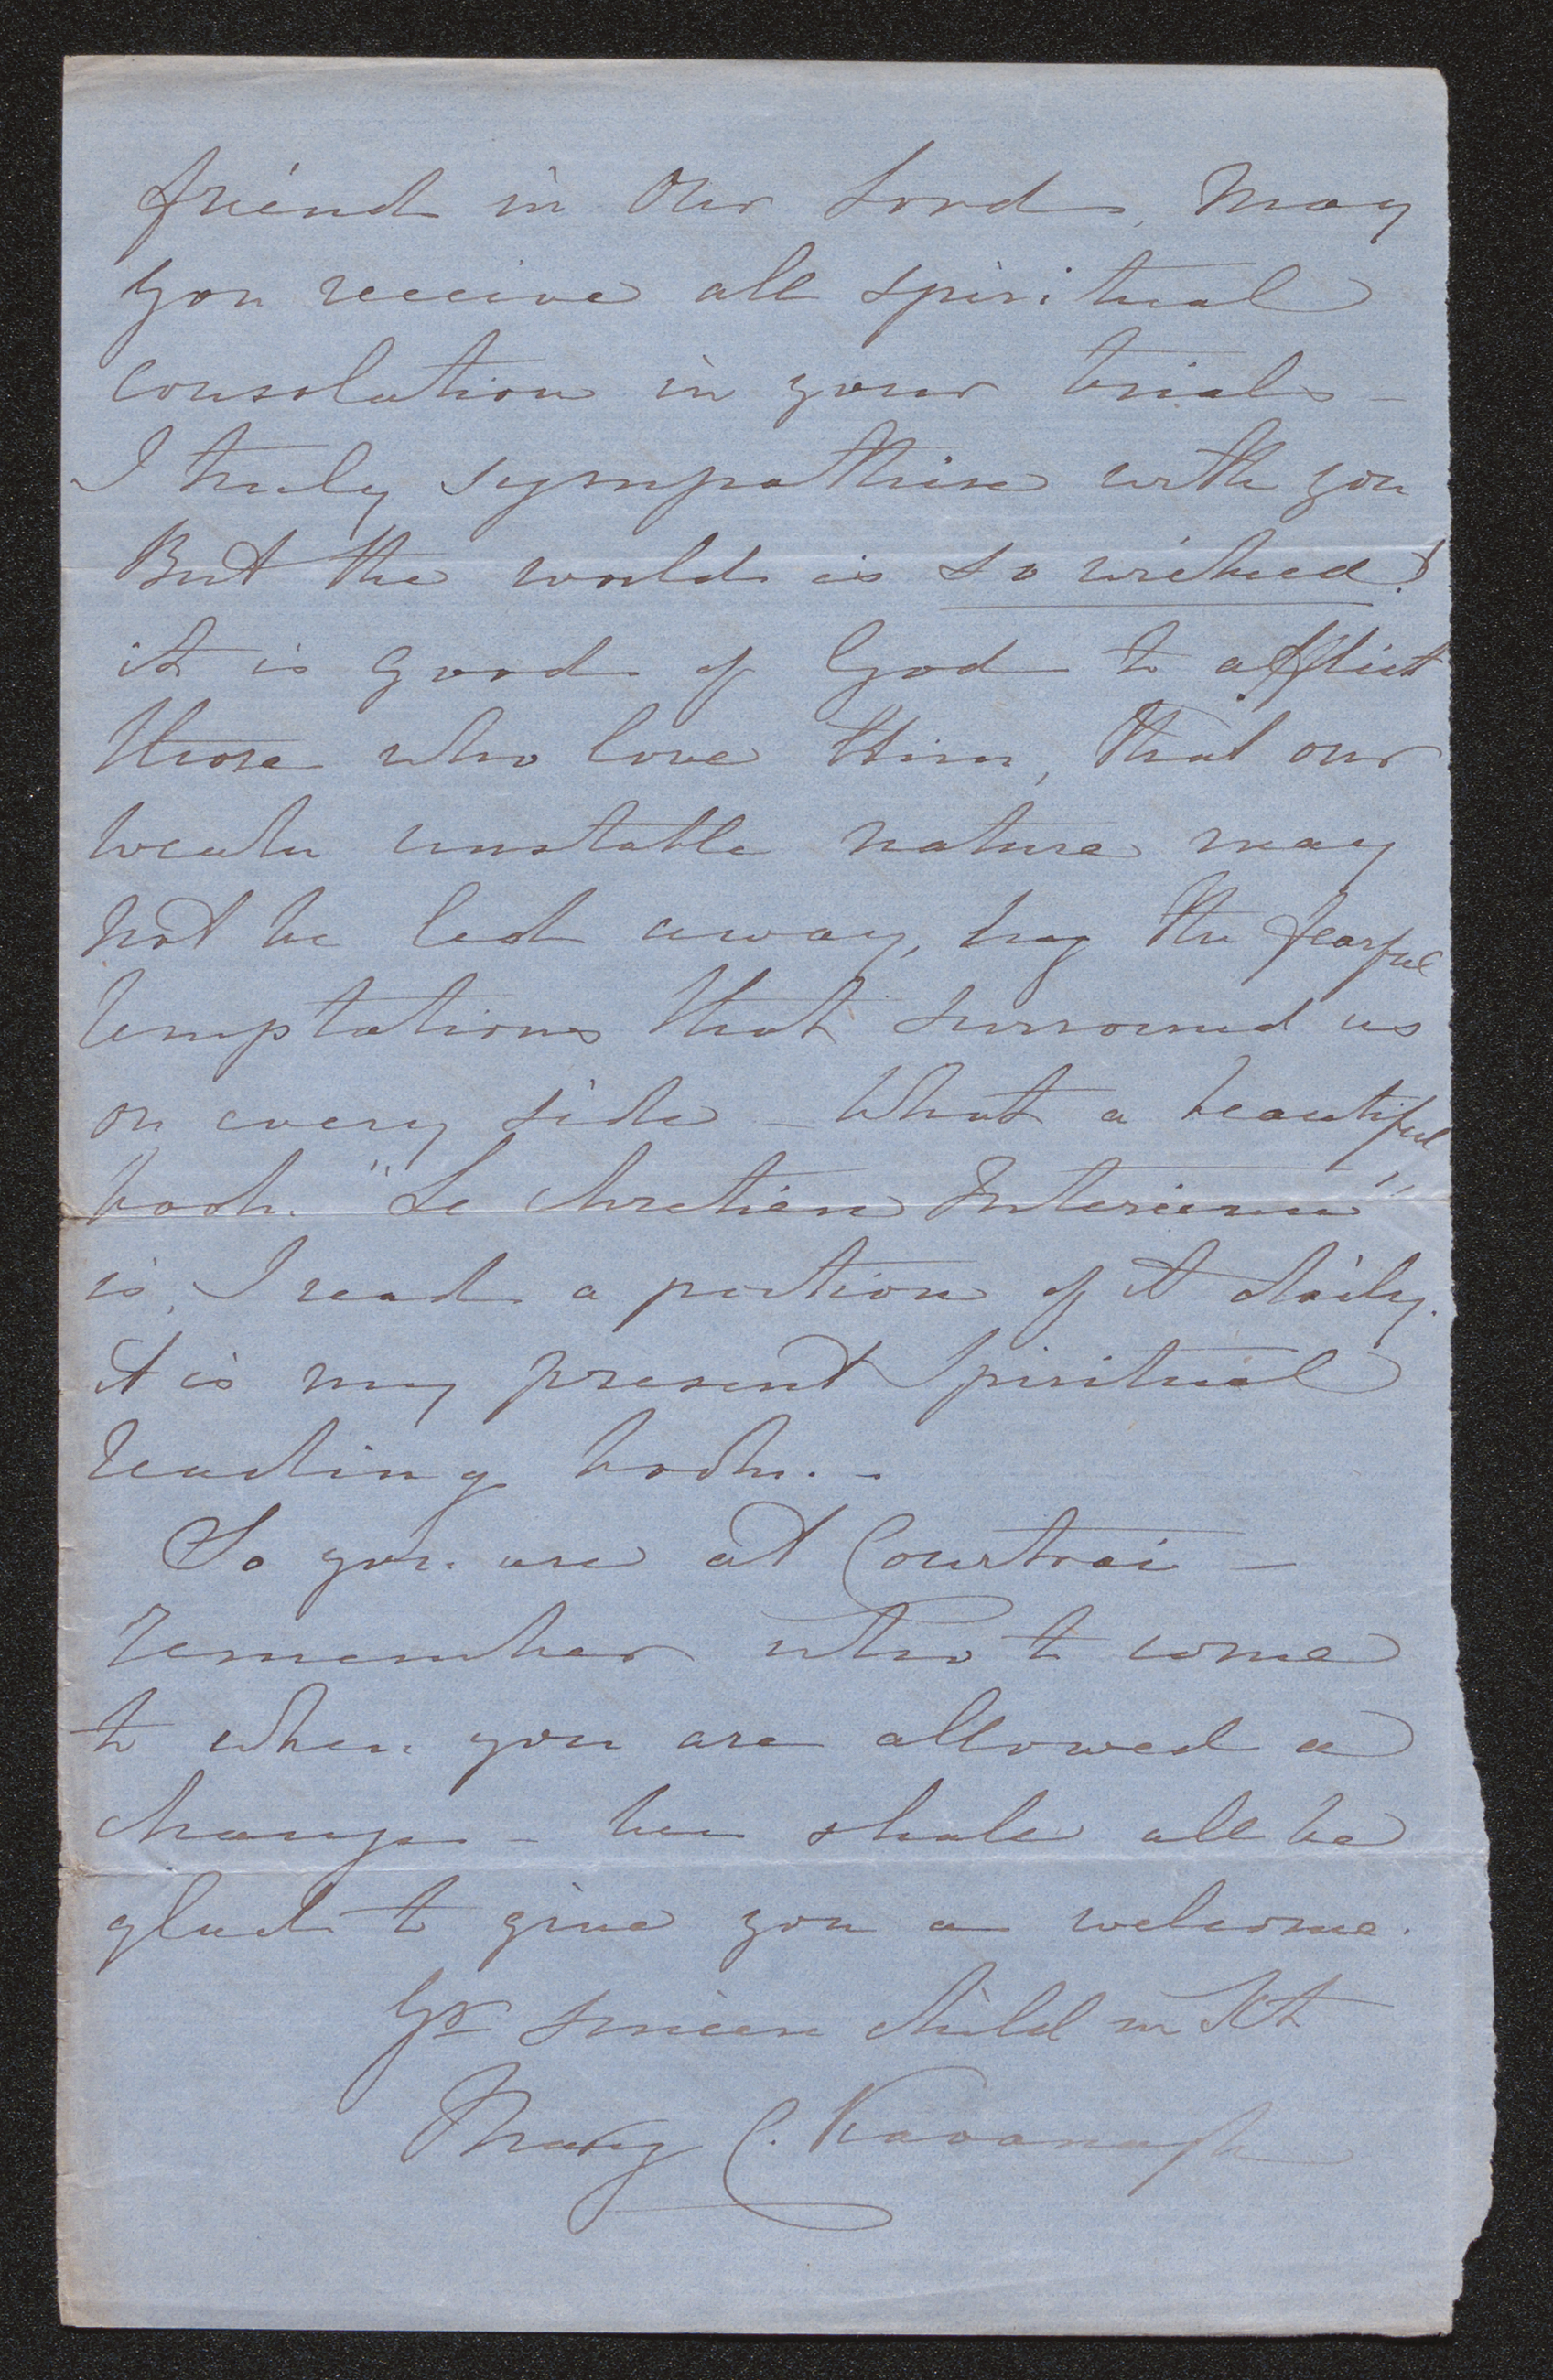 friend in Our Lord, May
you receive all spiritual
consolation in your trials -
I truly sympathise with you
But the world is so wicked!
it is good of God to afflict
those who love Him, that our
weak unstable nature may
not be led away, by the fearful
temptations that surround us
on every side - What a beautiful
book "Le Chretien Interieur"
is, I read a portion of it daily.
it is my present Spiritual
reading book. -
So you are at Courtrai -
remember who to come
to when you are allowed a
change - we shall all be
glad to give you a welcome.
Yr sincere child in Xt
Mary C. Kavanagh